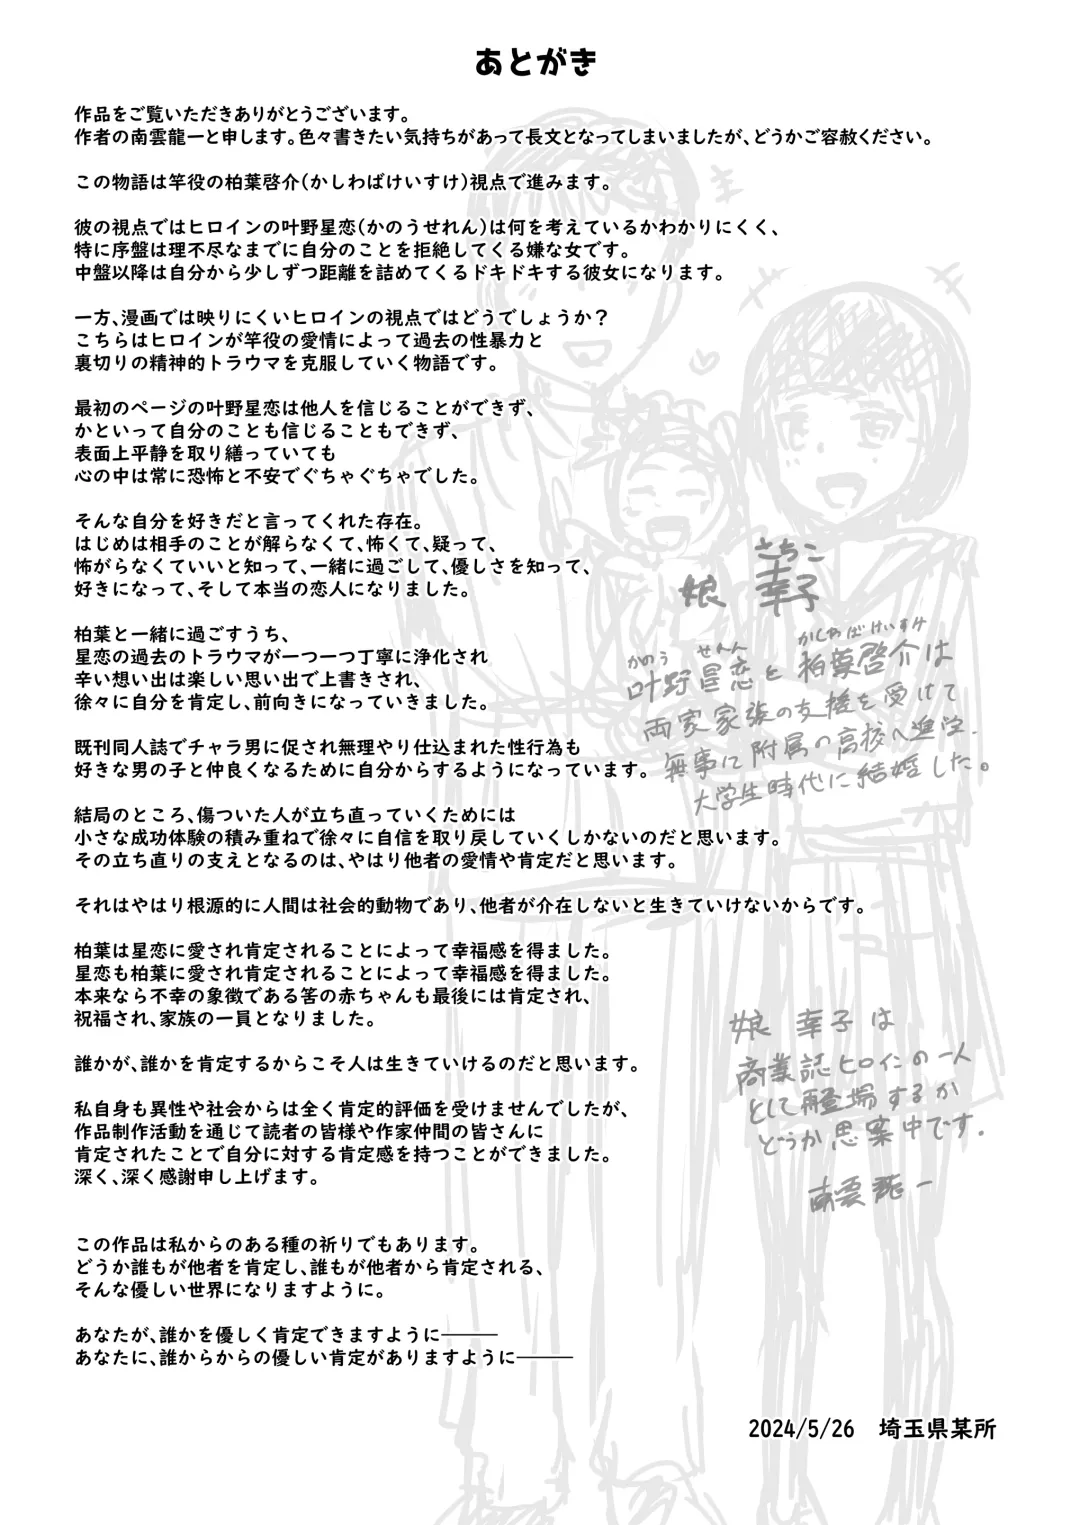 あとがき
作品をご覧いただきありがとうございます。
作者の南雲龍一と申します。色々書きたい気持ちがあって長文となってしまいましたが、どうかご容赦ください。
この物語は竿役の柏葉啓介(かしわばけいすけ)視点で進みます。
彼の視点ではヒロインの叶野星恋(かのうせれん)は何を考えているかわかりにくく、
特に序盤は理不尽なまでに自分のことを拒絶してくる嫌な女です。
中盤以降は自分から少しずつ距離を詰めてくるドキドキする彼女になります。
一方、漫画では映りにくいヒロインの視点ではどうでしょうか？
こちらはヒロインが竿役の愛情によって過去の性暴力と
裏切りの精神的トラウマを克服していく物語です。
最初のページの叶野星恋は他人を信じることができず、
かといって自分のことも信じることもできず、
表面上平静を取り繕っていても
心の中は常に恐怖と不安でぐちゃぐちゃでした。
そんな自分を好きだと言ってくれた存在。
はじめは相手のことが解らなくて、怖くて、疑って、
怖がらなくていいと知って、一緒に過ごして、優しさを知って、
好きになって、そして本当の恋人になりました。
柏葉と一緒に過ごすうち、
星恋の過去のトラウマが一つ一つ丁寧に浄化され
辛い想い出は楽しい思い出で上書きされ、
徐々に自分を肯定し、前向きになっていきました。
既刊同人誌でチャラ男に促され無理やり仕込まれた性行為も
好きな男の子と仲良くなるために自分からするようになっています。
結局のところ、傷ついた人が立ち直っていくためには
小さな成功体験の積み重ねで徐々に自信を取り戻していくしかないのだと思います。
その立ち直りの支えとなるのは、やはり他者の愛情や肯定だと思います。
それはやはり根源的に人間は社会的動物であり、他者が介在しないと生きていけないからです。
柏葉は星恋に愛され肯定されることによって幸福感を得ました。
星恋も柏葉に愛され肯定されることによって幸福感を得ました。
本来なら不幸の象徴である筈の赤ちゃんも最後には肯定され、
祝福され、家族の一員となりました。
誰かが、誰かを肯定するからこそ人は生きていけるのだと思います。
私自身も異性や社会からは全く肯定的評価を受けませんでしたが、
作品制作活動を通じて読者の皆様や作家仲間の皆さんに
肯定されたことで自分に対する肯定感を持つことができました。
深く、深く感謝申し上げます。
この作品は私からのある種の祈りでもあります。
どうか誰もが他者を肯定し、誰もが他者から肯定される、
そんな優しい世界になりますように。
あなたが、誰かを優しく肯定できますように―――
あなたに、誰からからの優しい肯定がありますように―――
2024/5/26　埼玉県某所
さちこ
娘 幸子
かのう せれん かしわばけいすけ
叶野星恋と柏葉啓介は
両家家族の支援を受けて
無事に附属の高校へ進学.
大学生時代に結婚した。
娘 幸子は
商業誌ヒロインの一人
として再登場するか
どうか思案中です.
南雲龍一